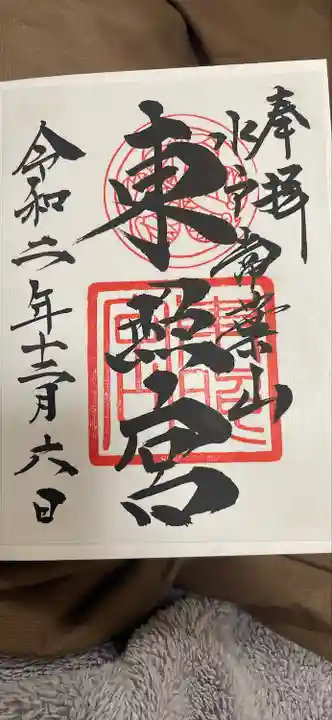 奉拝
水戸常葉山
東照宮
令和二年十二月六日